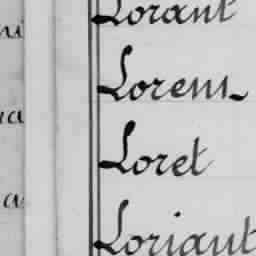 Lorant
Lorens
Loret
Loriaut